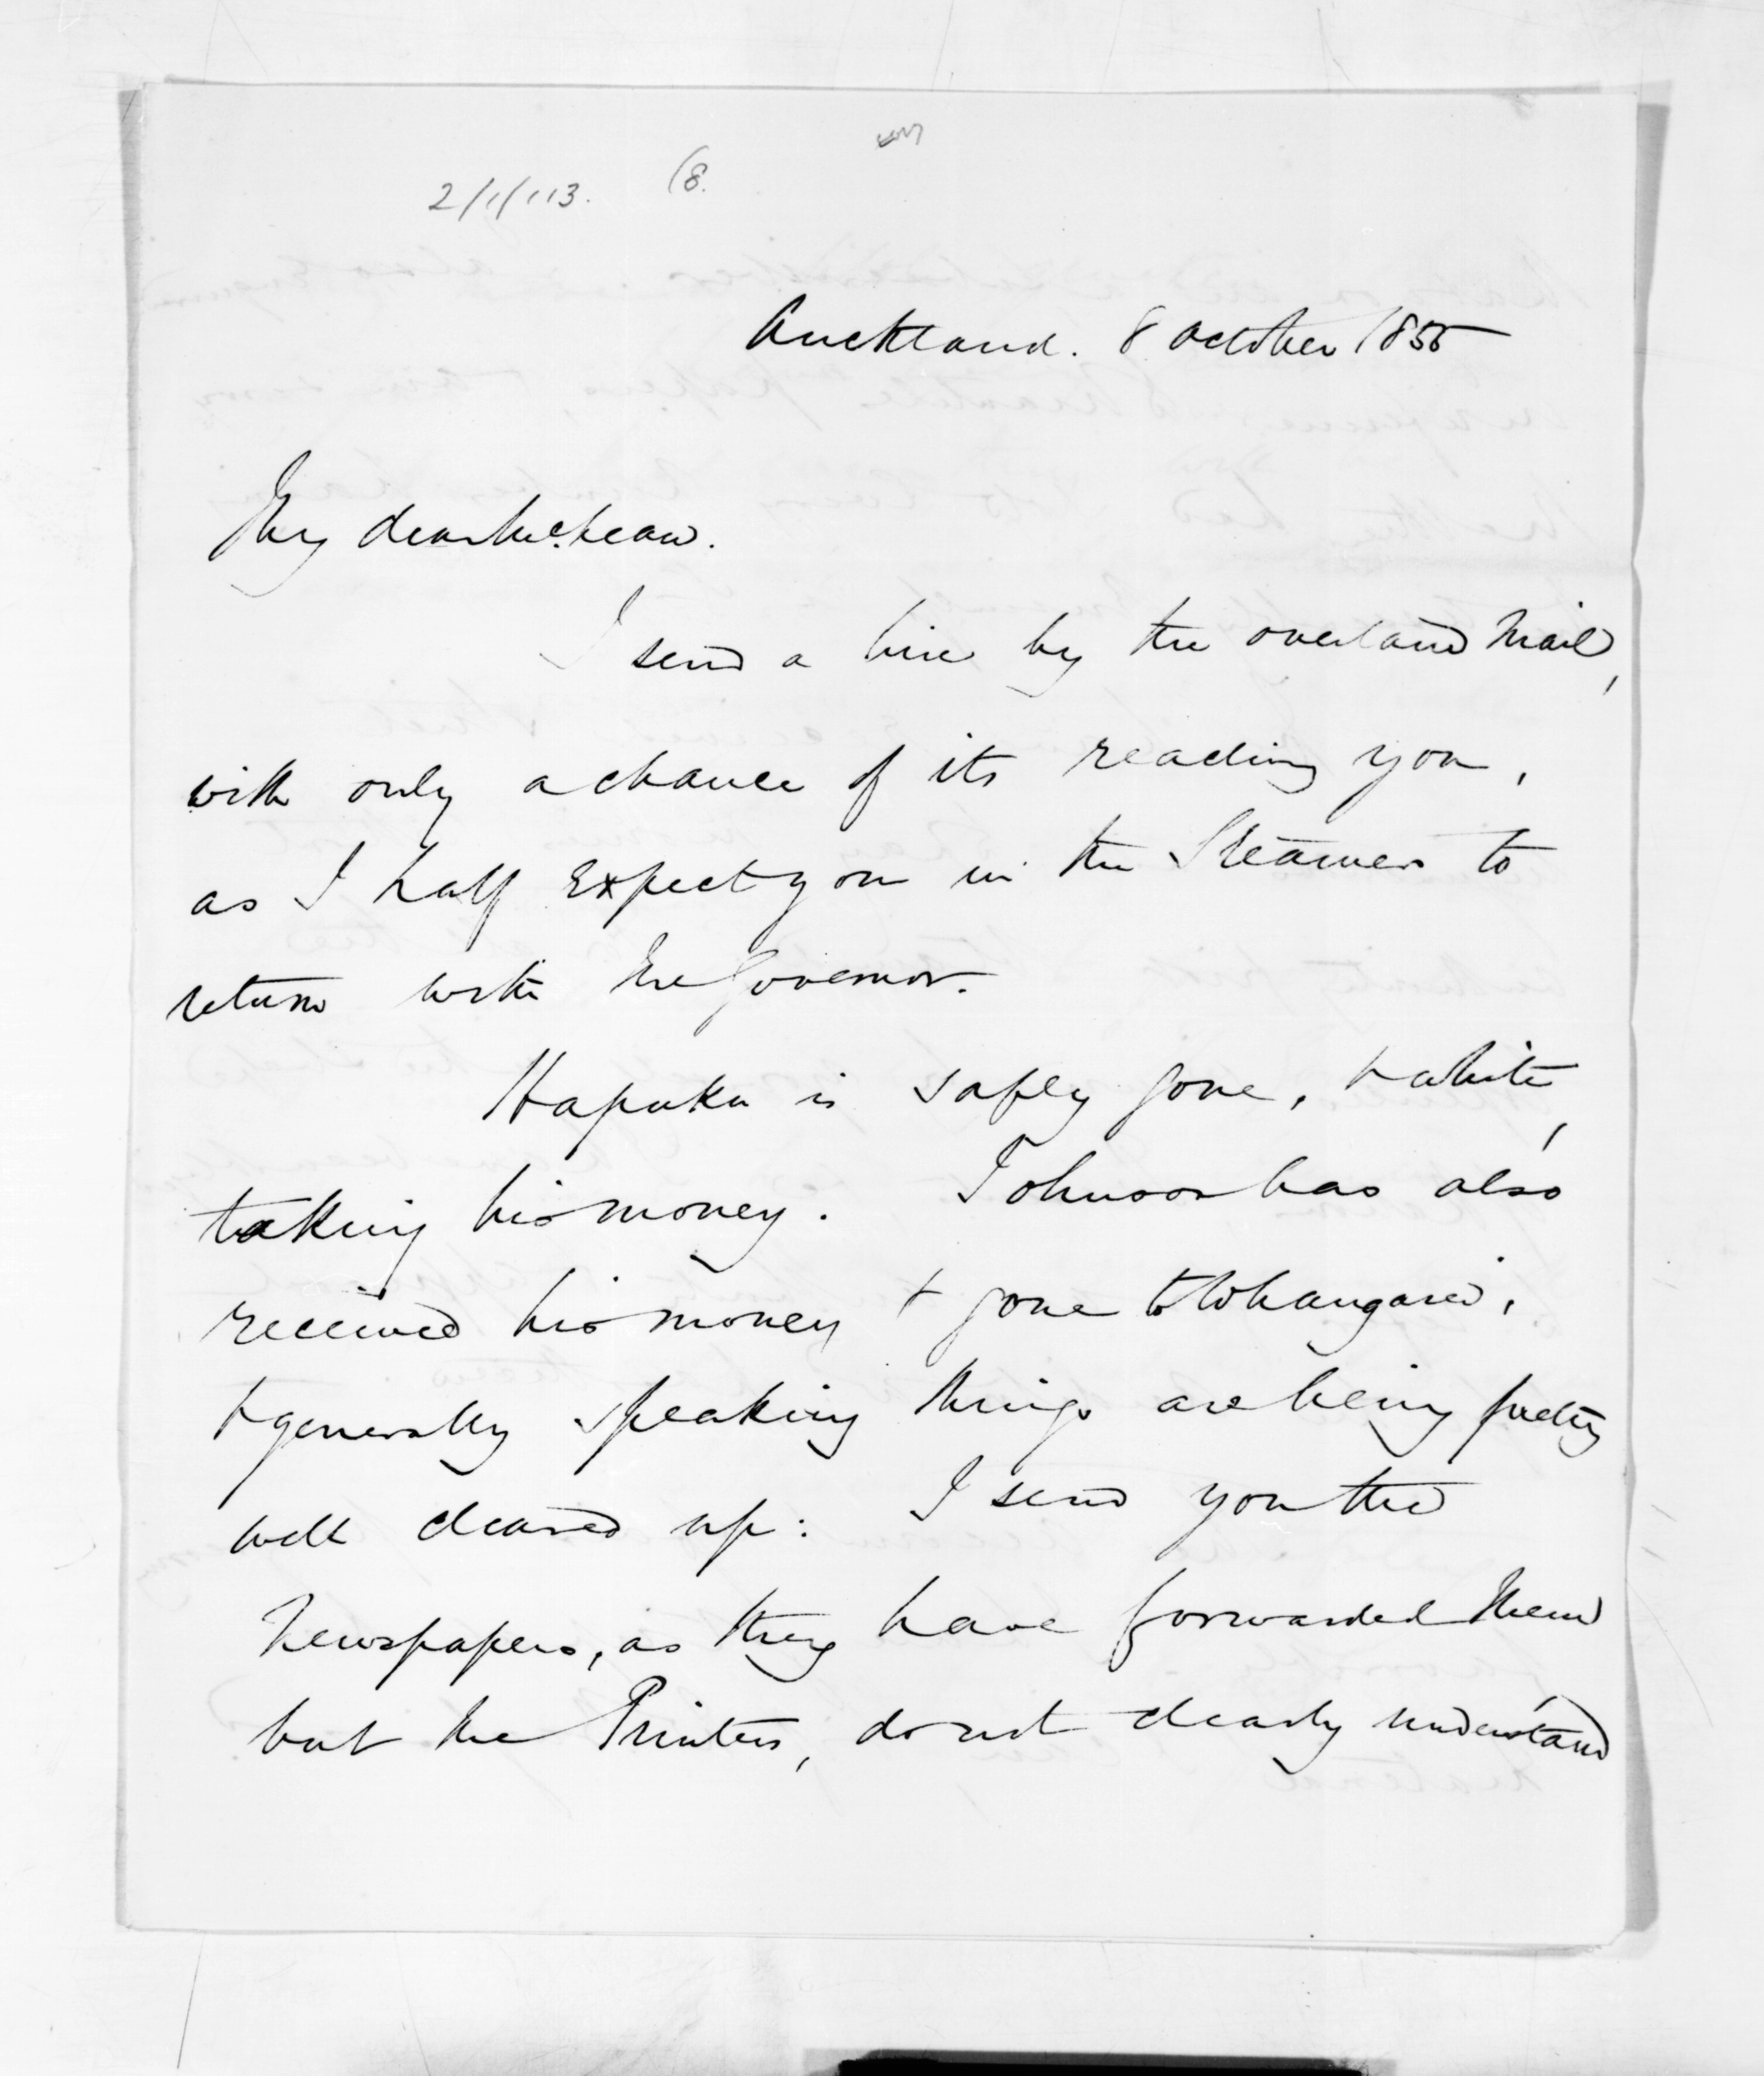 2/1/113. (8.
Auckland. 8 October 1855
My dear McLean.
I send a line by the overland Mail,
with only a chance of its reaching you,
as I half expect you in the Steamer to
return with the Governor.
Hapuku is safely gone, & White,
taking his money. Johnson has also
received his money & gone to Whangarei,
& generally speaking things are being pretty
well cleared up: I send you the
Newspapers, as they have forwarded them
but the Printers, do not clearly understand